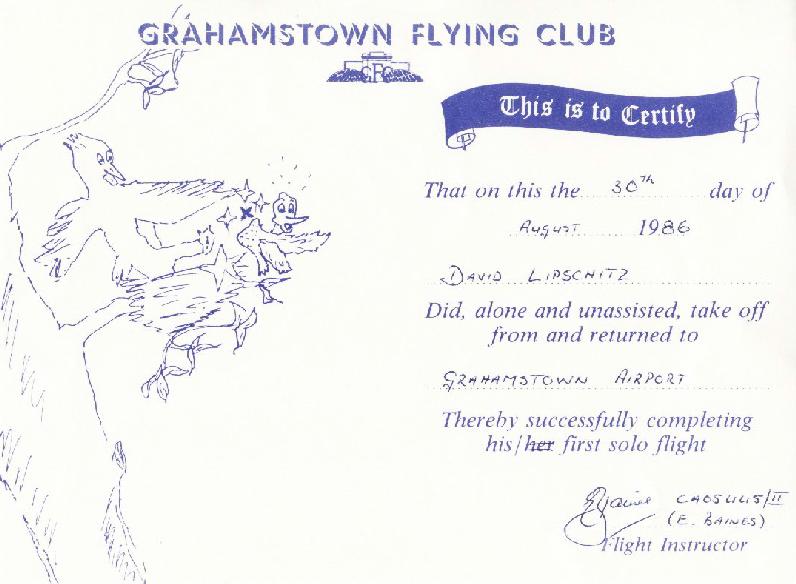 GRAHAMSTOWN FLYING CLUB
GFC
This is to Certify
That on this the 30th day of
August 1986
DAVID LIPSCHITZ
Did, alone and unassisted, take off
from and returned to
GRAHAMSTOWN AIRPORT
Thereby successfully completing
his/her first solo flight
(E. BAINES)
Flight Instructor